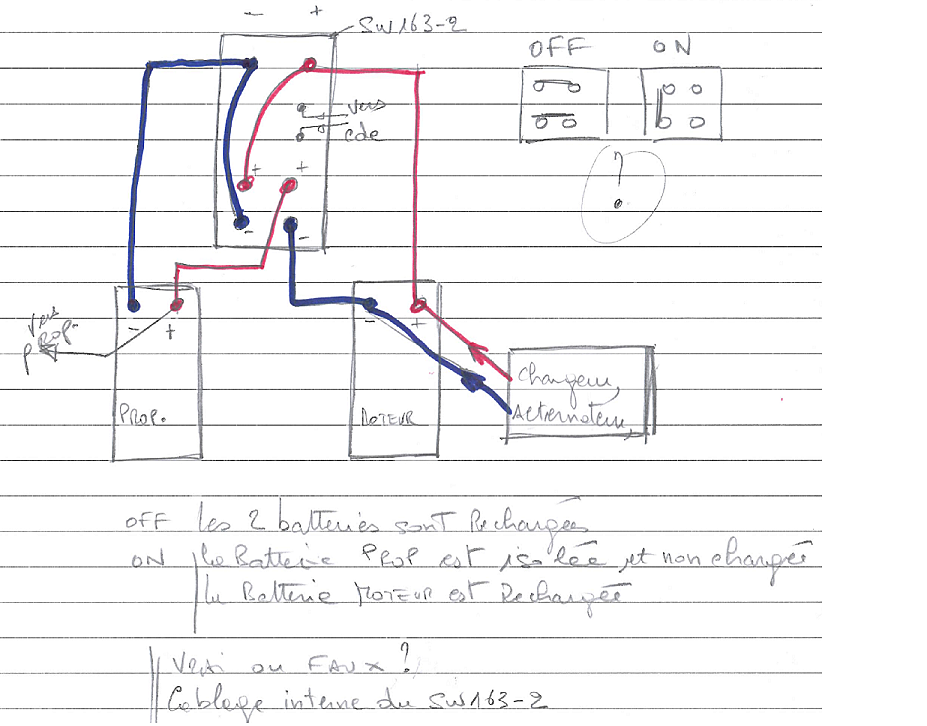 - +
SW163-2
OFF ON
vers
cde
+ +
- -
?
vers
PROP.
- +
- +
PROP.
MOTEUR
Chargeur,
Alternateur,
OFF les 2 batteries sont Rechargées
ON la Batterie PROP est isolée et non chargée
la Batterie MOTEUR est Rechargée
Vrai ou FAUX ?
Cablage interne du SW163-2